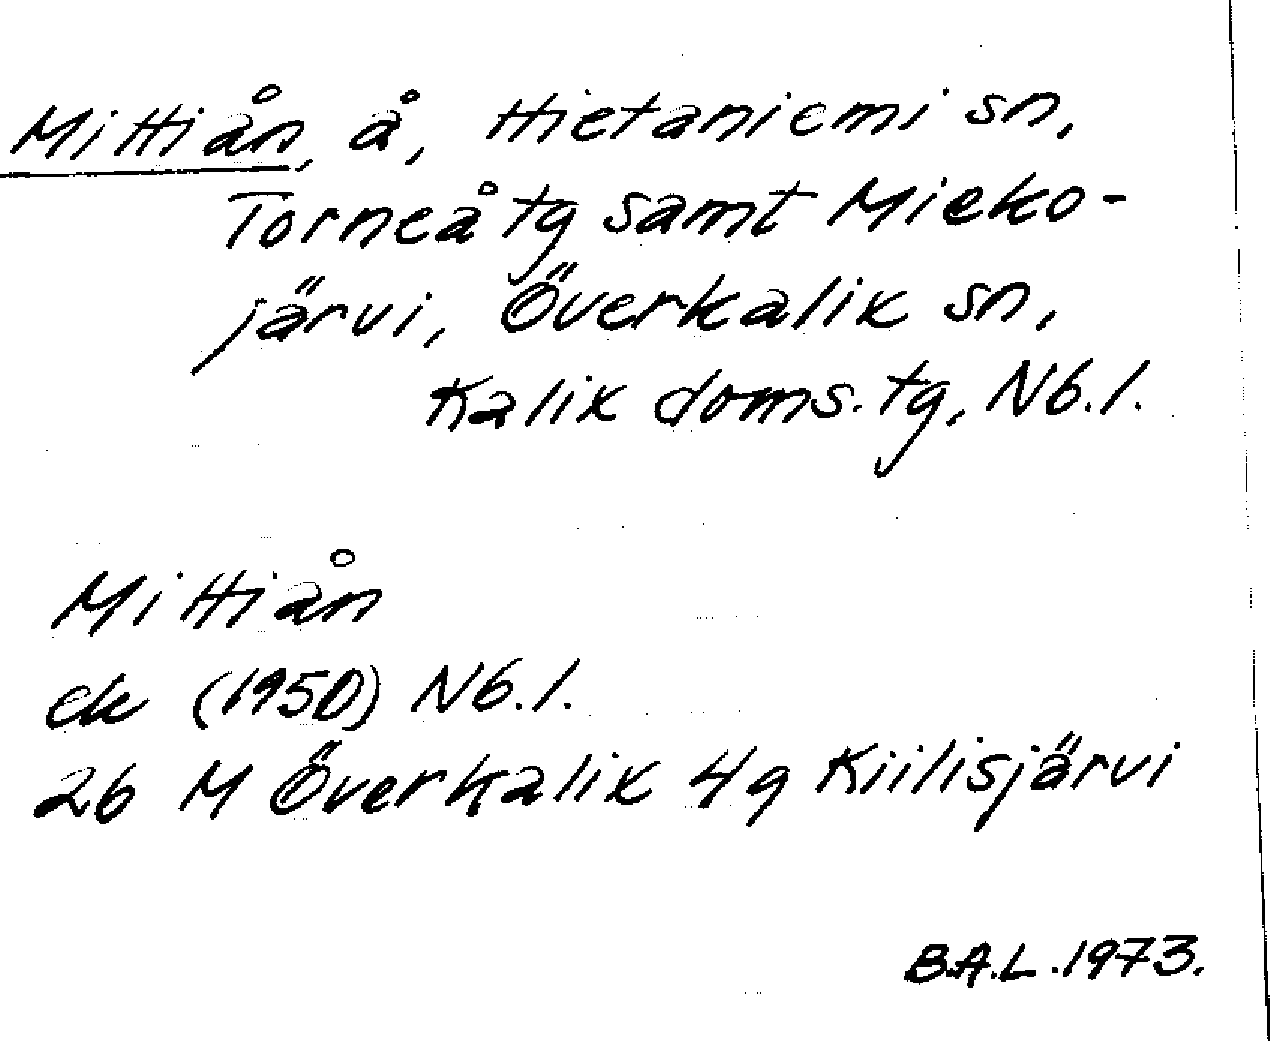 Mittiån, å, Hietaniemi sn,
Torneå tg samt Mieko-
järvi, Överkalix sn,
Kalix doms. tg, Nb. l.
Mittiån
ek (1950) Nb. l.
26 M Överkalix 4g Kiilisjärvi
B.A.L. 1973.